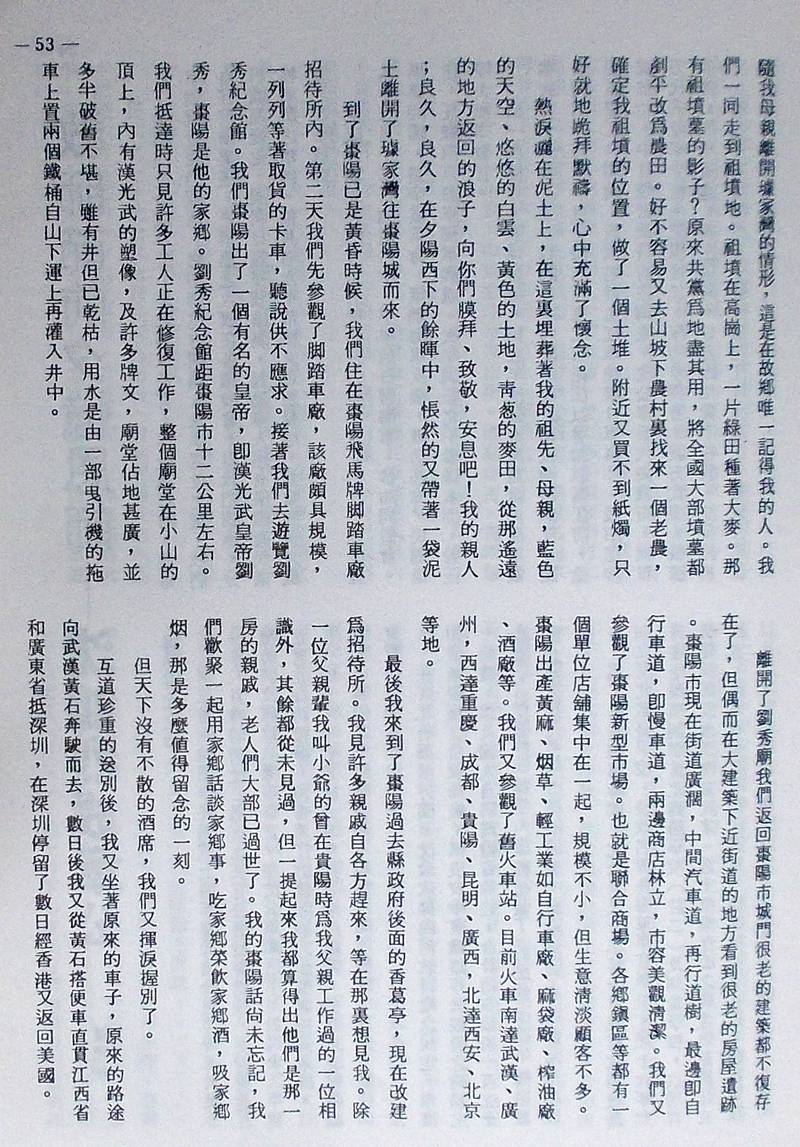 —53—
隨我母親離開璩家灣的情形，這是在故鄉唯一記得我的人。我
們一同走到祖墳地。祖墳在高崗上，一片綠田種著大麥。那
有祖墳墓的影子？原來共黨爲地盡其用，將全國大部墳墓都
剷平改爲農田。好不容易又去山坡下農村裏找來一個老農，
確定我祖墳的位置，做了一個土堆。附近又買不到紙燭，只
好就地跪拜默禱，心中充滿了懷念。
熱淚灑在泥土上，在這裏埋葬著我的祖先、母親，藍色
的天空、悠悠的白雲、黃色的土地，靑葱的麥田，從那遙遠
的地方返回的浪子，向你們膜拜、致敬，安息吧！我的親人
；良久，良久，在夕陽西下的餘暉中，悵然的又帶著一袋泥
土離開了璩家灣往棗陽城而來。
到了棗陽已是黃昏時候，我們住在棗陽飛馬牌脚踏車廠
招待所內。第二天我們先參觀了脚踏車廠，該廠頗具規模，
一列列等著取貨的卡車，聽說供不應求。接著我們去遊覽劉
秀紀念館。我們棗陽出了一個有名的皇帝，卽漢光武皇帝劉
秀，棗陽是他的家鄉。劉秀紀念館距棗陽市十二公里左右。
我們抵達時只見許多工人正在修復工作，整個廟堂在小山的
頂上，內有漢光武的塑像，及許多牌文，廟堂佔地甚廣，並
多半破舊不堪，雖有井但已乾枯，用水是由一部曳引機的拖
車上置兩個鐵桶自山下運上再灌入井中。
離開了劉秀廟我們返回棗陽市城門很老的建築都不復存
在了，但偶而在大建築下近街道的地方看到很老的房屋遺跡
。棗陽市現在街道廣濶，中間汽車道，再行道樹，最邊卽自
行車道，卽慢車道，兩邊商店林立，市容美觀淸潔。我們又
參觀了棗陽新型市場。也就是聯合商場。各鄉鎭區等都有一
個單位店舖集中在一起，規模不小，但生意淸淡顧客不多。
棗陽出產黃麻、烟草、輕工業如自行車廠、麻袋廠、榨油廠
、酒廠等。我們又參觀了舊火車站。目前火車南達武漢、廣
州，西達重慶、成都、貴陽、昆明、廣西，北達西安、北京
等地。
最後我來到了棗陽過去縣政府後面的香葛亭，現在改建
爲招待所。我見許多親戚自各方趕來，等在那裏想見我。除
一位父親輩我叫小爺的曾在貴陽時爲我父親工作過的一位相
識外，其餘都從未見過，但一提起來我都算得出他們是那一
房的親戚，老人們大部已過世了。我的棗陽話尙未忘記，我
們歡聚一起用家鄉話談家鄉事，吃家鄉菜飮家鄉酒，吸家鄉
烟，那是多麼値得留念的一刻。
但天下沒有不散的酒席，我們又揮淚握別了。
互道珍重的送別後，我又坐著原來的車子，原來的路途
向武漢黃石奔駛而去，數日後我又從黃石搭便車直貫江西省
和廣東省抵深圳，在深圳停留了數日經香港又返回美國。